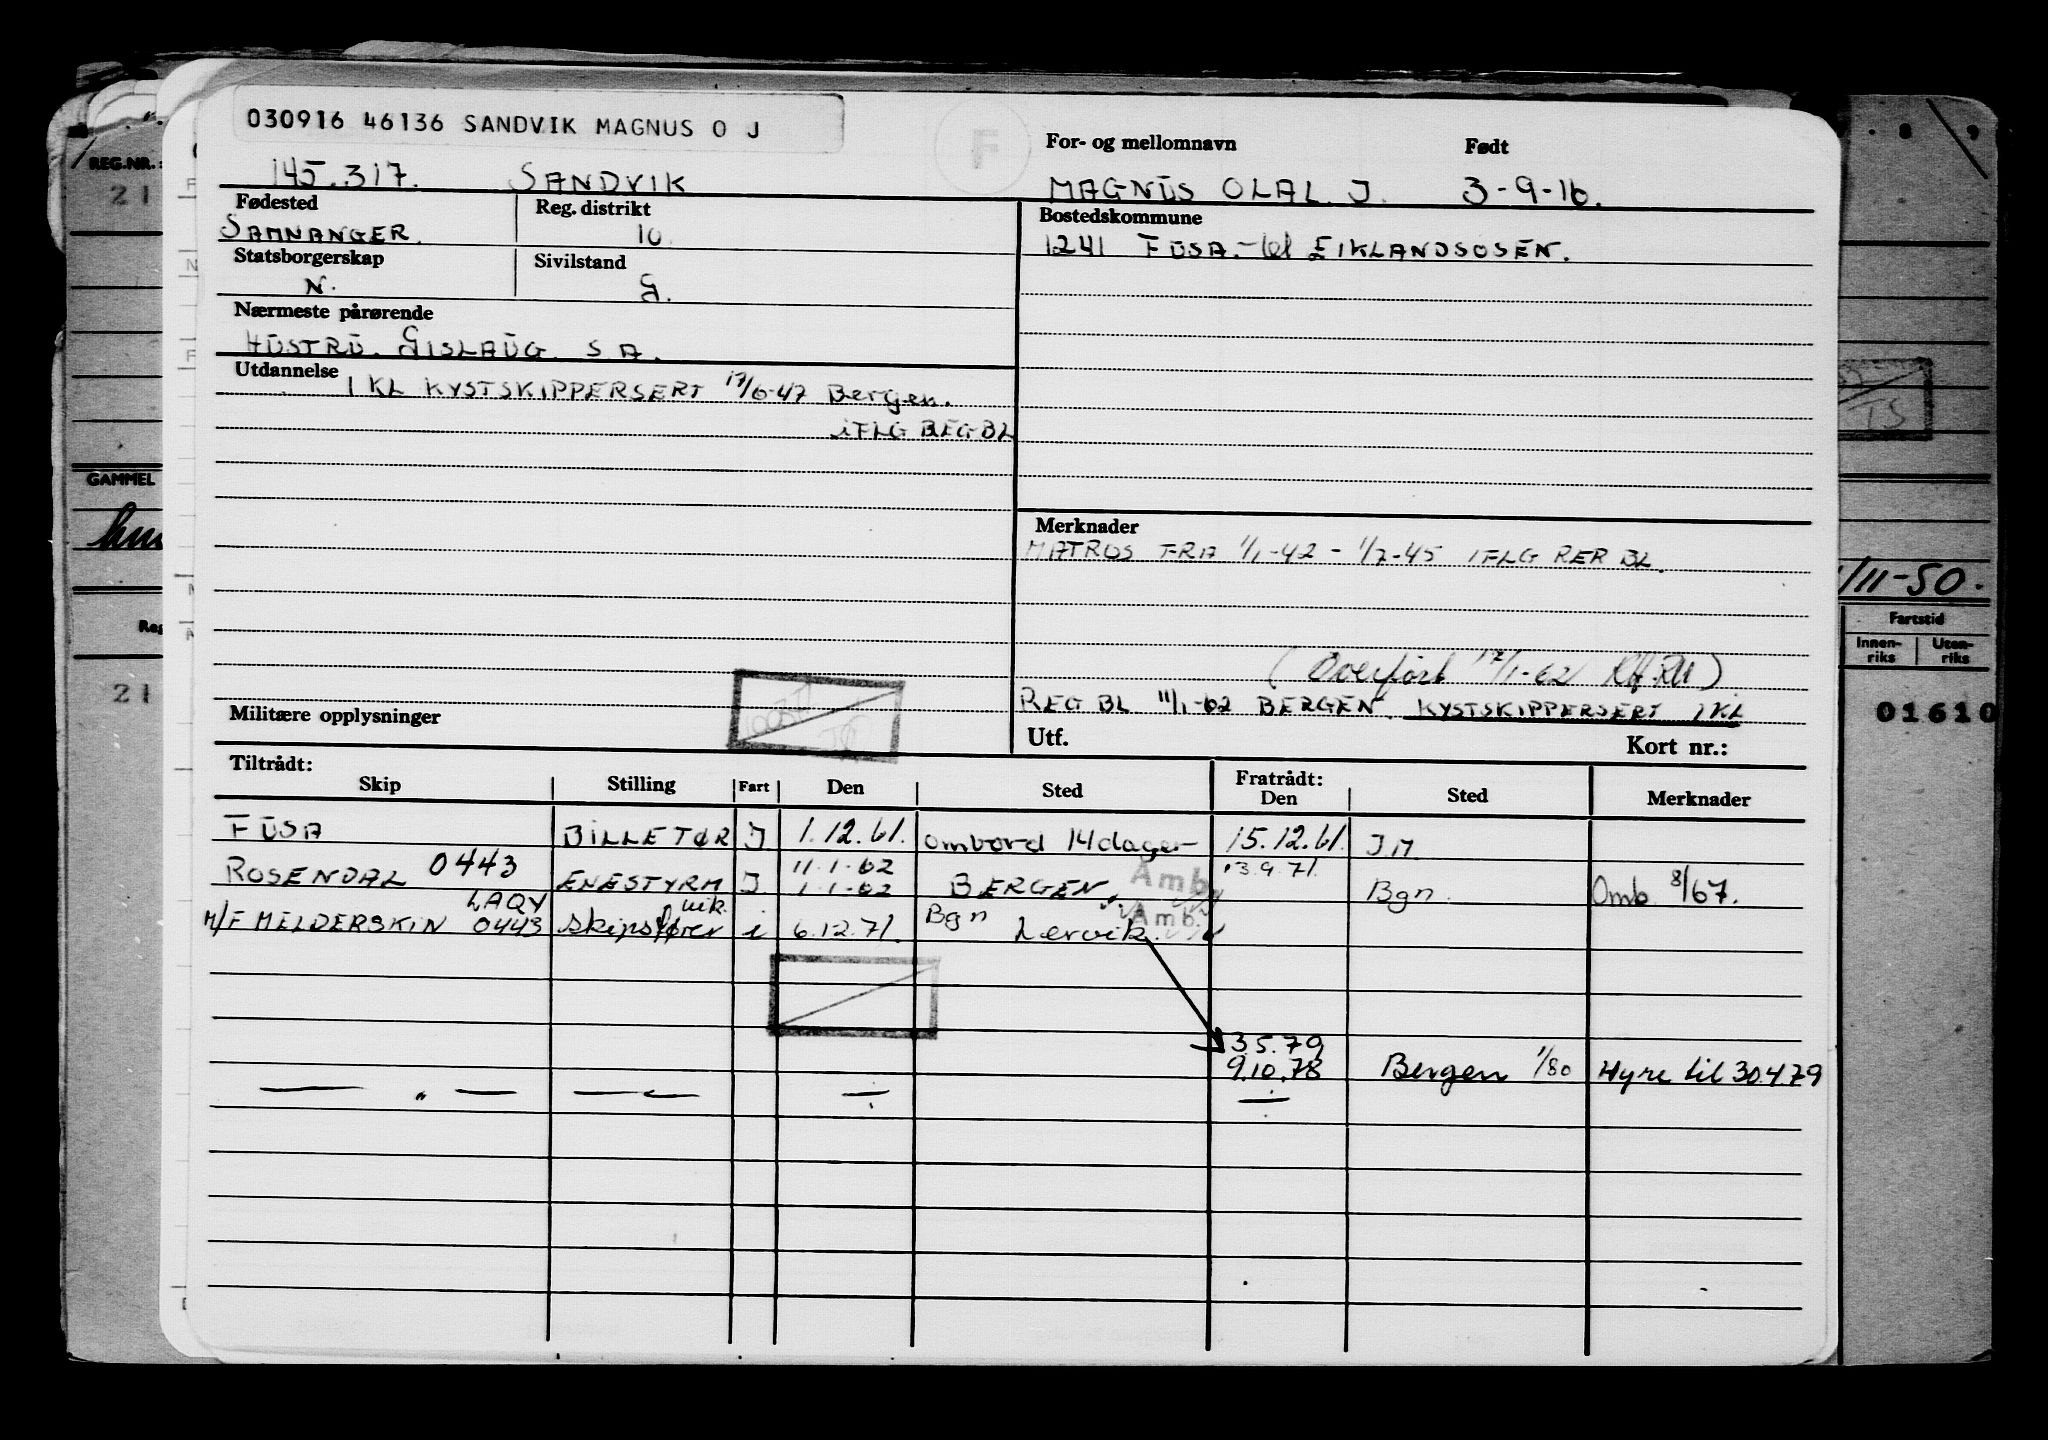 030916 46136 SANDVIK MAGNUS O J
F
For- og mellomnavn Født
145.317. SANDVIK MAGNUS OLAL. J. 3-9-16.
Fødested Reg. distrikt Bostedskommune
SAMNANGER. 10 1241 FUSA.- tel EIKLANDSOSEN.
Statsborgerskap Sivilstand
N. G.
Nærmeste pårørende
HUSTRU. GISLAUG. S.A.
Utdannelse
1 KL KYSTSKIPPERSERT 17/6-47 Bergen.
iFLG REG BL
Merknader
MATROS FRA 1/1-42 - 1/7-45 IFLG RER BL.
(Overført 17/1-62
REG BL 11/1-62 BERGEN. KYSTSKIPPERSERT 1KL
Militære opplysninger
Utf. Kort nr.:
Tiltrådt: Fratrådt:
Skip Stilling Fart Den Sted Den Sted Merknader
FUSA BILLETØR J 1.12.61. ombord 14 dager- 15.12.61. J.M.
11.1-62 Amb 3.9.71.
ROSENDAL 0443 ENESTYRM J 1-1-62 BERGEN. Bgn. Omb 8/67.
LAQY vik. Bgn Amb.
M/F MELDERSKIN 0443 skipsfører i 6.12.71. Lervik.
3.5.79
9.10.78 Bergen 1/80 Hyre til 30.4.79
— " — — — — —
REG.NR.:
21
GAMMEL
Reg
21
8 9
TS
1/11-50.
Fartstid
Innen-riks Uten-riks
01610